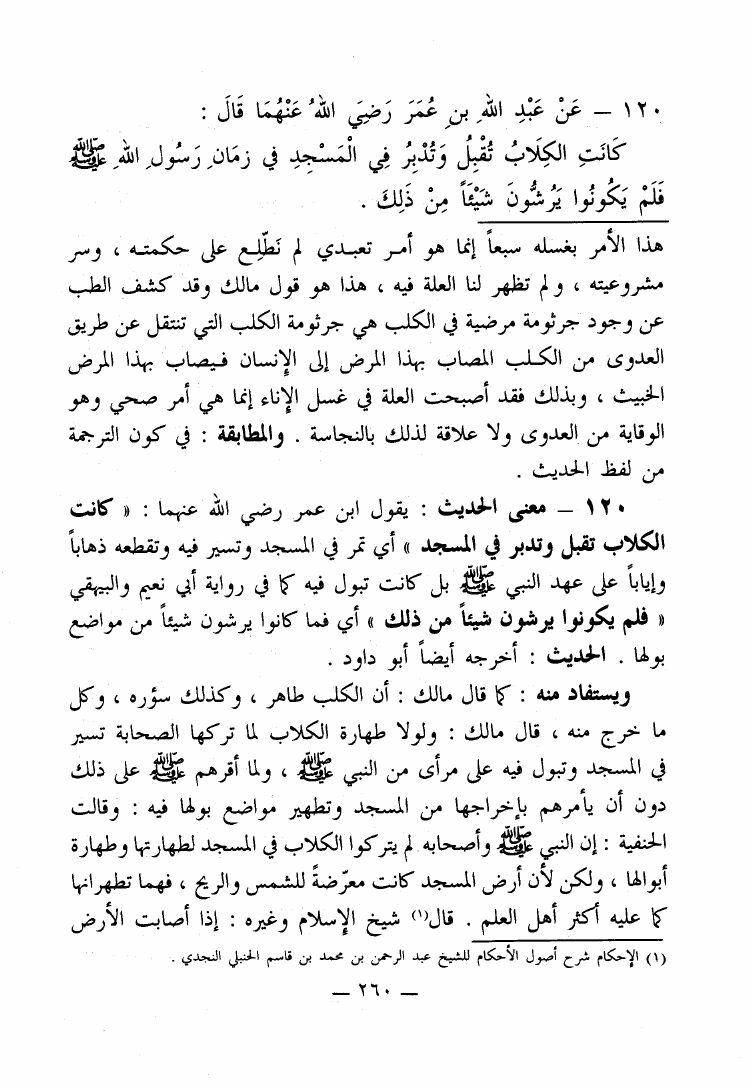 ١٢٠ – عَنْ عَبْدِ اللهِ بنِ عُمَرَ رَضِيَ اللهُ عَنْهُمَا قَالَ :
كَانَتِ الكِلَابُ تُقْبِلُ وَتُدْبِرُ فِي الْمَسْجِدِ في زمَانِ رَسُولِ اللهِ ﷺ
فَلَمْ يَكُونُوا يَرُشُّونَ شَيْئَاً مِنْ ذَلِكَ .
هذا الأمر بغسله سبعاً إنما هو أمر تعبدي لم نَطَّلِع على حكمته ، وسر
مشروعيته ، ولم تظهر لنا العلة فيه ، هذا هو قول مالك وقد كشف الطب
عن وجود جرثومة مرضية في الكلب هي جرثومة الكلب التي تنتقل عن طريق
العدوى من الكلب المصاب بهذا المرض إلى الإنسان فيصاب بهذا المرض
الخبيث ، وبذلك فقد أصبحت العلة في غسل الإناء إنما هي أمر صحي وهو
الوقاية من العدوى ولا علاقة لذلك بالنجاسة . والمطابقة : في كون الترجمة
من لفظ الحديث .
١٢٠ – معنى الحديث : يقول ابن عمر رضي الله عنهما : « كانت
الكلاب تقبل وتدبر في المسجد » أي تمر في المسجد وتسير فيه وتقطعه ذهاباً
وإياباً على عهد النبي ﷺ بل كانت تبول فيه كما في رواية أبي نعيم والبيهقي
« فلم يكونوا يرشون شيئاً من ذلك » أي فما كانوا يرشون شيئاً من مواضع
بولها . الحديث : أخرجه أيضاً أبو داود .
ويستفاد منه : كما قال مالك : أن الكلب طاهر ، وكذلك سؤره ، وكل
ما خرج منه ، قال مالك : ولولا طهارة الكلاب لما تركها الصحابة تسير
في المسجد وتبول فيه على مرأى من النبي ﷺ ، ولما أقرهم ﷺ على ذلك
دون أن يأمرهم بإخراجها من المسجد وتطهير مواضع بولها فيه : وقالت
الحنفية : إن النبي ﷺ وأصحابه لم يتركوا الكلاب في المسجد لطهارتها وطهارة
أبوالها ، ولكن لأن أرض المسجد كانت معرّضةً للشمس والريح ، فهما تطهرانها
كما عليه أكثر أهل العلم . قال(١) شيخ الإسلام وغيره : إذا أصابت الأرض
(١) الإحكام شرح أصول الأحكام للشيخ عبد الرحمن بن محمد بن قاسم الحنبلي النجدي .
– ٢٦٠ –